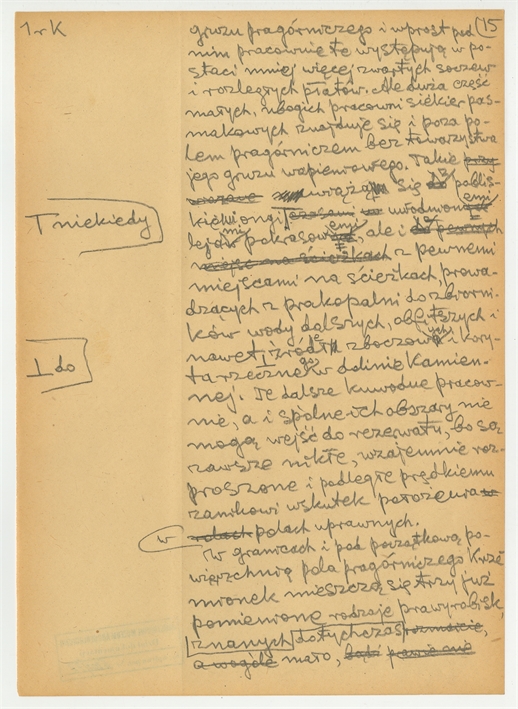 1. r K
15
gruzu pragórniczego i wprost pod
nim pracownie te występują w po-
staci mniej więcej zwartych soczew
i rozległych płatów. Ale duża część
małych, ubogich pracowni siekier pas-
makowych znajduje się i poza po-
lem pragórniczem bez towarzystwa
jego gruzu wapieniowego. Takie
wiążą się poblis-
kiemi ongi
T niekiedy
lejami pokrasowemi, ale i
miejsc na ścieżkach z pewnemi
miejscami na ścieżkach, prowa-
dzących z prakopalni do zbiorni-
ków wody dalszych, obfitszych i
nawet źródeł zboczowych i kory-
I do
ta rzecznego w dolinie Kamien-
nej. Te dalsze kuwodne pracow-
nie, a i spólne ich obszary nie
mogą wejść do rezerwatu, bo są
zawsze nikłe, wzajemnie roz-
proszone i podległe prędkiemu
zanikowi wskutek położenia
w polach uprawnych.
W granicach i pod początkową po-
wierzchnią pola pragórniczego Krze-
mionek mieszczą się trzy już
pomienione rodzaje prawyrobisk,
znanych dotychczas rozmaicie,
a wogóle mało, bądź prawie nie